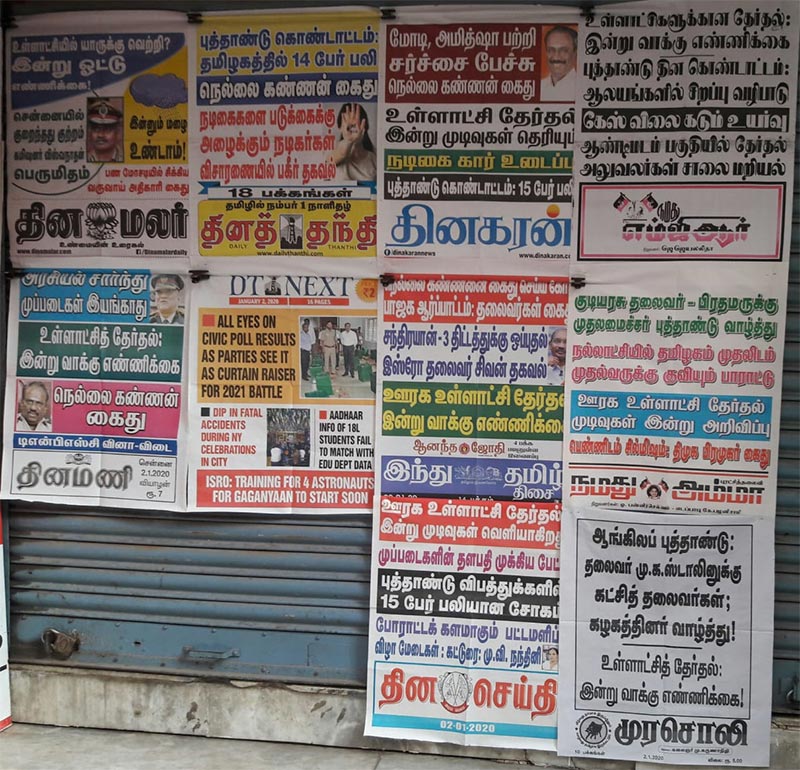 உள்ளாட்சியில் யாருக்கு வெற்றி?
இன்று ஓட்டு
எண்ணிக்கை!
சென்னையில்
குறைந்தது குற்றம்
கமிஷனர் விஸ்வநாதன்
பெருமிதம்
இன்னும் மழை
உண்டாம்!
பண மோசடியில் சிக்கிய
வருவாய் அதிகாரி கைது
தின மலர்
உண்மையின் உரைகல்
www.dinamalar.com
/Dinamalardaily
புத்தாண்டு கொண்டாட்டம்:
தமிழகத்தில் 14 பேர் பலி
நெல்லை கண்ணன் கைது
நடிகைகளை படுக்கைக்கு
அழைக்கும் நடிகர்கள்
விசாரணையில் பகீர் தகவல்
18 பக்கங்கள்
தமிழில் நம்பர் 1 நாளிதழ்
தினத் தந்தி
DAILY THANTHI
www.dailythanthi.com
மோடி, அமித்ஷா பற்றி
சர்ச்சை பேச்சு
நெல்லை கண்ணன் கைது
உள்ளாட்சி தேர்தல்
இன்று முடிவுகள் தெரியும்
நடிகை கார் உடைப்பு
புத்தாண்டு கொண்டாட்டம்: 15 பேர் பலி
தினகரன்
/dinakarannews
www.dinakaran.com
உள்ளாட்சிகளுக்கான தேர்தல்:
இன்று வாக்கு எண்ணிக்கை
புத்தாண்டு தின கொண்டாட்டம்:
ஆலயங்களில் சிறப்பு வழிபாடு
கேஸ் விலை கடும் உயர்வு
ஆண்டிமடம் பகுதியில் தேர்தல்
அலுவலர்கள் சாலை மறியல்
எம்ஜிஆர்
அரசியல் சார்ந்து
முப்படைகள் இயங்காது
உள்ளாட்சித் தேர்தல்:
இன்று வாக்கு எண்ணிக்கை
நெல்லை கண்ணன்
கைது
டிஎன்பிஎஸ்சி வினா-விடை
தினமணி
சென்னை
2.1.2020
வியாழன்
ரூ. 7
DT NEXT
JANUARY 2, 2020
16 PAGES
₹2
ALL EYES ON
CIVIC POLL RESULTS
AS PARTIES SEE IT
AS CURTAIN RAISER
FOR 2021 BATTLE
DIP IN FATAL
ACCIDENTS
DURING NY
CELEBRATIONS
IN CITY
AADHAAR
INFO OF 18L
STUDENTS FAIL
TO MATCH WITH
EDU DEPT DATA
ISRO: TRAINING FOR 4 ASTRONAUTS
FOR GAGANYAAN TO START SOON
நெல்லை கண்ணனை கைது செய்ய கோரி
பாஜக ஆர்ப்பாட்டம்: தலைவர்கள் கைது
சந்திரயான்-3 திட்டத்துக்கு ஒப்புதல்
இஸ்ரோ தலைவர் சிவன் தகவல்
ஊரக உள்ளாட்சி தேர்தல்
இன்று வாக்கு எண்ணிக்கை
ஆனந்த ஜோதி
4 பக்க
இந்து தமிழ்
திசை
குடியரசு தலைவர் - பிரதமருக்கு
முதலமைச்சர் புத்தாண்டு வாழ்த்து
நல்லாட்சியில் தமிழகம் முதலிடம்
முதல்வருக்கு குவியும் பாராட்டு
ஊரக உள்ளாட்சி தேர்தல்
முடிவுகள் இன்று அறிவிப்பு
பெண்ணிடம் சில்மிஷம்: திமுக பிரமுகர் கைது
புரட்சித்தலைவி
நமது அம்மா
ஊரக உள்ளாட்சி தேர்தல்
இன்று முடிவுகள் வெளியாகிறது
முப்படைகளின் தளபதி முக்கிய
புத்தாண்டு விபத்துக்களில்
15 பேர் பலியான சோகம்
போராட்டக் களமாகும் பட்டமளிப்பு
விழா மேடைகள் : கட்டுரை: மு.வி. நந்தினி
தின செய்தி
02-01-2020
ஆங்கிலப் புத்தாண்டு:
தலைவர் மு.க.ஸ்டாலினுக்கு
கட்சித் தலைவர்கள்;
கழகத்தினர் வாழ்த்து!
உள்ளாட்சித் தேர்தல்:
இன்று வாக்கு எண்ணிக்கை!
முரசொலி
10 பக்கங்கள்
2.1.2020
விலை: ரூ. 5.00